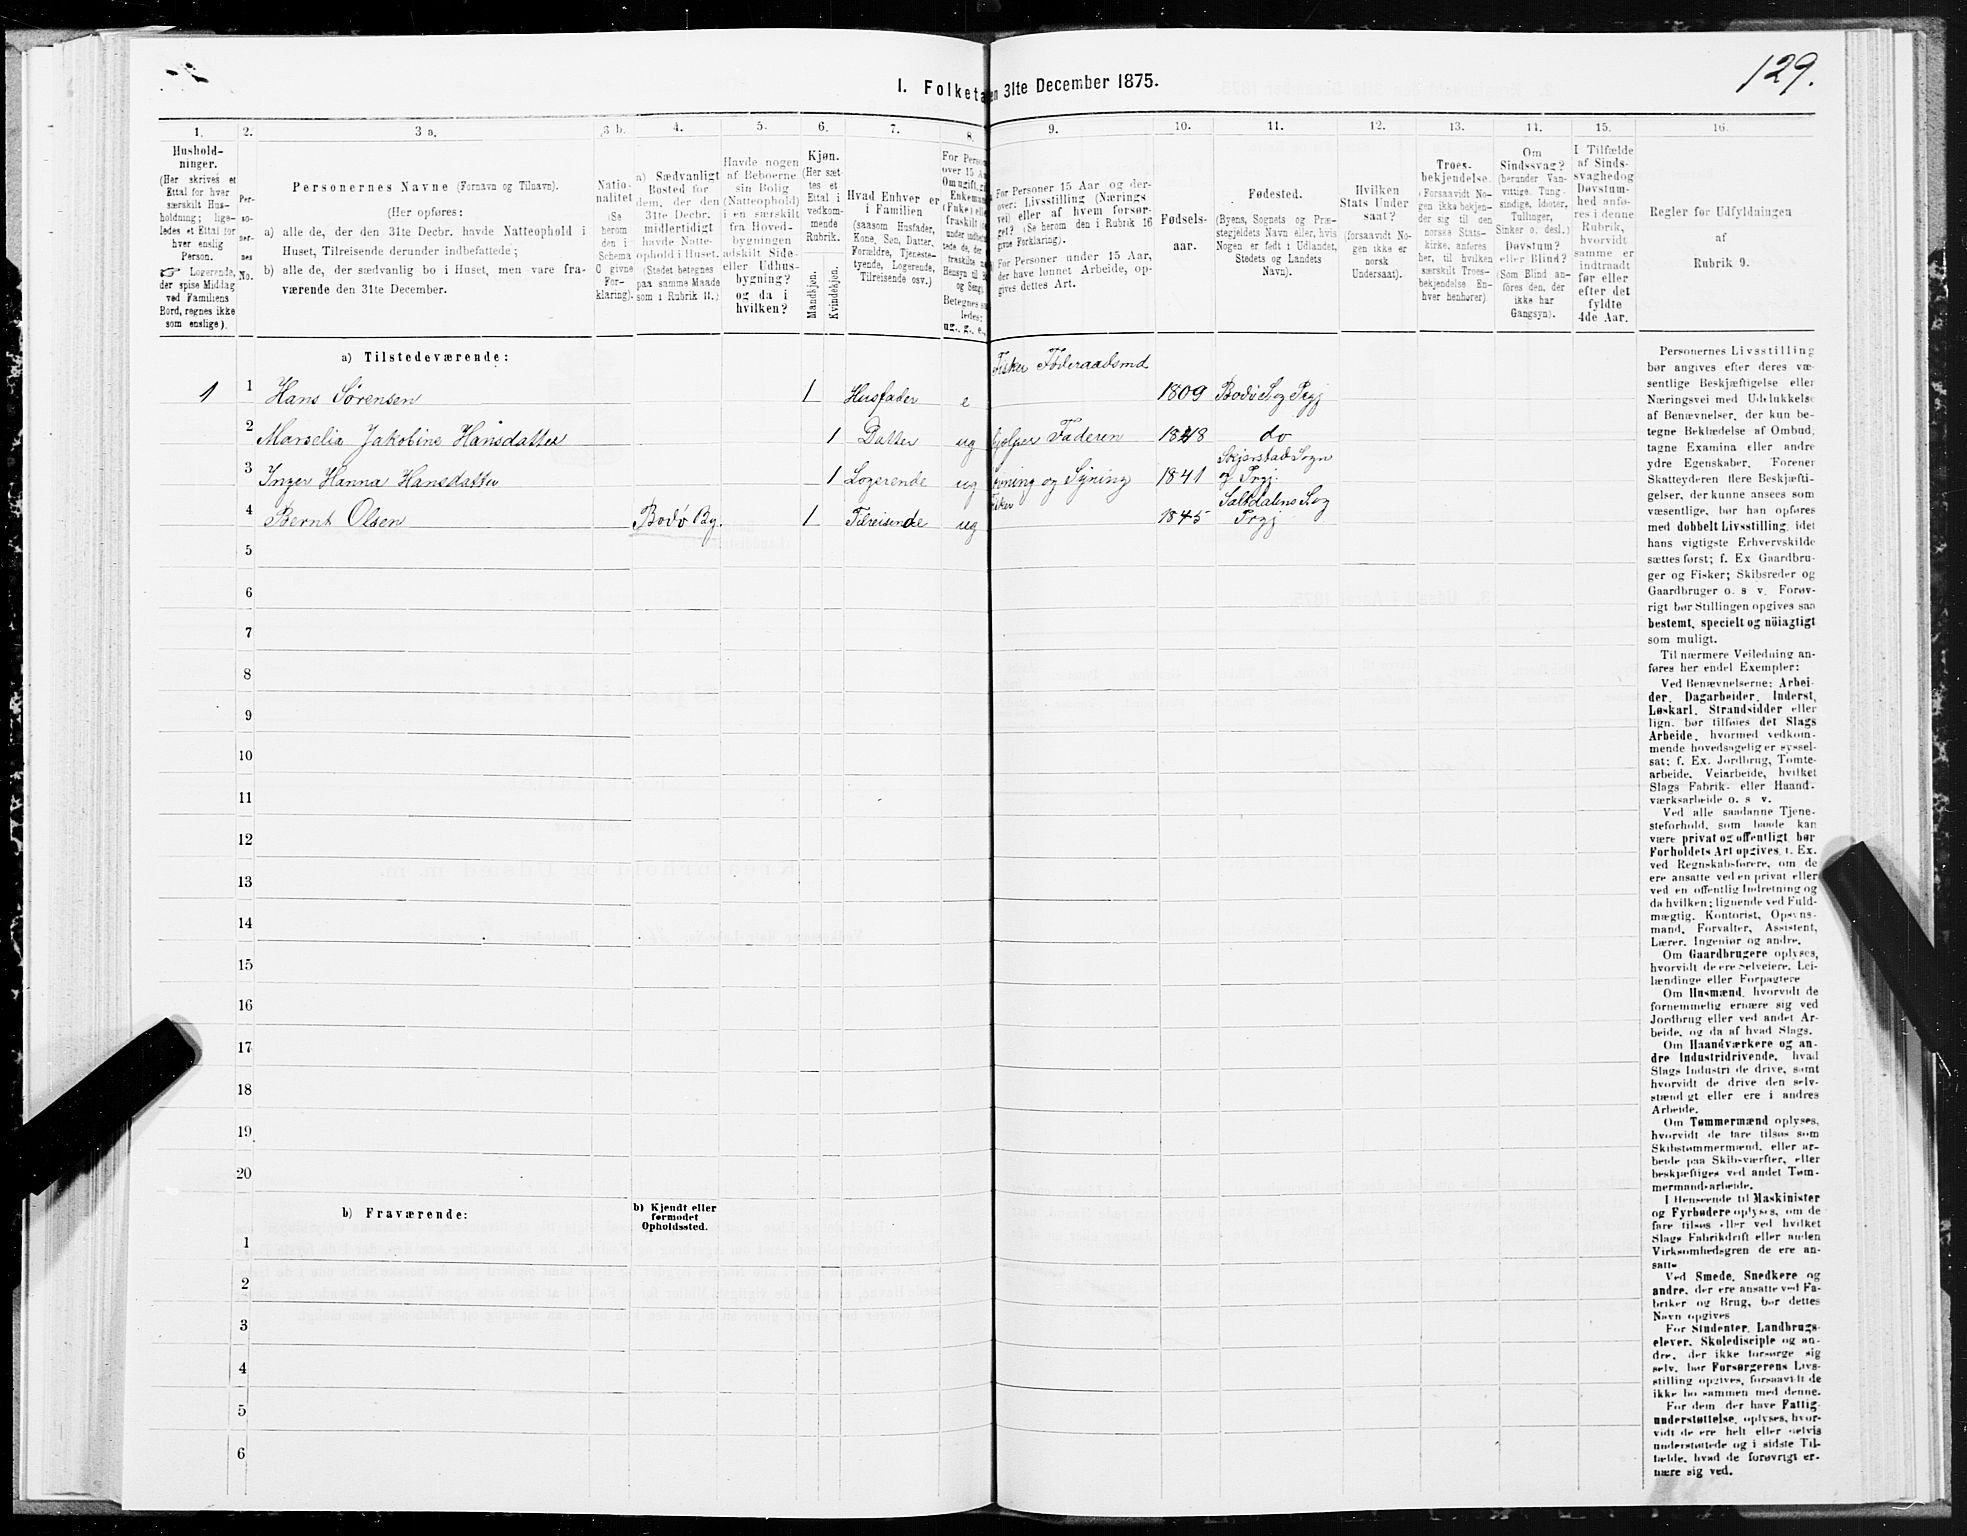 129.
I. Folketa en 31te December 1875.
1. 2. 3 a. 3 b. 4. 5. 6. 7. 8. 9. 10. 11. 12. 13. 14. 15. 16.
Hushold-
ninger.
(Her skrives et
Ettal for hver
særskilt Hus-
holdning; lige-
ledes et Ettal for
hver enslig
Person.
☞ Logerende,
der spise Middag
ved Familiens
Bord, regnes ikke
som enslige).
Per-
so-
ner-
nes
No.
Personernes Navne (Fornavn og Tilnavn).
(Her opføres:
a) alle de, der den 31te Decbr. havde Natteophold i
Huset, Tilreisende derunder indbefattede;
b) alle de, der sædvanlig bo i Huset, men vare fra-
værende den 31te December.
Natio-
nalitet
(Se
herom
den i
Schema
C givne
For-
klaring).
a) Sædvanligt
Bosted for
dem, der den
31te Decbr.
midlertidigt
havde Natte-
ophold i Huset.
(Stedet betegnes
paa samme Maade
som i Rubrik 11.)
Havde nogen
af Beboerne
sin Bolig
(Natteophold)
i en særskilt
fra Hoved-
bygningen
adskilt Side-
eller Udhus-
bygning?
og da i
hvilken?
Kjøn.
(Her sæt-
tes et
Ettal i
vedkom-
mende
Rubrik.
Mandkjøn.
Kvindekjøn.
Hvad Enhver er
i Familien
(saasom Husfader,
Kone, Søn, Datter,
Forældre, Tjeneste-
tyende, Logerende,
Tilreisende osv.)
For Person
over 15 A
Om ugift, g
Enkeman
(Enke) ell
fraskilt
tede de, der
fraskilte
Hensyn til B
og Seng.
Betegnes s
ledes:
ug., g., e.,
For Personer 15 Aar og der-
over: Livsstilling (Nærings
vei) eller af hvem forsør-
get? (Se herom den i Rubrik 16
givne Forklaring).
For Personer under 15 Aar,
der have lønnet Arbeide, op-
gives dettes Art.
Fødsels-
aar.
Fødested.
(Byens, Sognets og Præ-
stegjeldets Navn eller, hvis
Nogen er født i Udlandet,
Stedets og Landets
Navn).
Hvilken
Stats Under
saat?
(forsaavidt No-
gen ikke er
norsk
Undersaat).
Troes-
bekjendelse.
(Forsaavidt No-
gen ikke bekjen-
der sig til den
norske Stats-
kirke, anføres
her, til hvilken
særskilt Troes-
bekjendelse En-
hver henhører)
Om
Sindssvag?
(herunder Van-
vittige, Tung-
sindige, Idioter,
Tullinger,
Sinker o. desl.)
Døvstum?
eller Blind?
(Som Blind an-
føres den, der
ikke har
Gangsyn).
I Tilfælde
af Sinds-
svaghed og
Døvstum-
hed anfø-
res i denne
Rubrik,
hvorvidt
samme er
indtraadt
før eller
efter det
fyldte
4de Aar.
Regler for Udfyldningen
af
Rubrik 9.
a) Tilstedeværende:
Fisker Føderaadsmd
1 1 Hans Sørensen 1 Husfader e 1809 Bodø S og Prgj
2 Marselia Jakobine Hansdatter 1 Datter ug hjælper Faderen 1848 do
3 Inger Hanna Hansdatter 1 Logerende ug ning og Syning 1841 Skjerstad Sogn
og Prgj.
4 Bernt Olsen Bodø By. 1 Tilreisende ug Fisker 1845 Saltdalens S og
Prgj
5
6
7
8
9
10
11
12
13
14
15
16
17
18
19
20
b) Fraværende:
b) Kjendt eller
formodet
Opholdssted.
1
2
3
4
5
6
Personernes Livsstilling
bør angives efter deres væ-
sentlige Beskjæftigelse eller
Næringsvei med Udelukkelse
af Benævnelser, der kun be-
tegne Beklædelse af Ombud,
tagne Examina eller andre
ydre Egenskaber. Forener
Skatteyderen flere Beskjæfti-
gelser, der kunne ansees som
væsentlige, bør han opføres
med dobbelt Livsstilling, idet
hans vigtigste Erhvervskilde
sættes først; f. Ex Gaardbru-
ger og Fisker; Skibsreder og
Gaardbruger o. s v. Forøv-
rigt bør Stillingen opgives saa
bestemt, specielt og nöiagtigt
som muligt.
Til nærmere Veiledning an-
føres her endel Exempler:
Ved Benævnelserne: Arbei-
der, Dagarbeider, Inderst,
Løskarl, Strandsidder eller
lign. bør tilføies det Slags
Arbeide, hvormed vedkom-
mende hovedsagelig er syssel-
sat; f. Ex. Jordbrug, Tomte-
arbeide, Veiarbeide, hvilket
Slags Fabrik- eller Haand-
værksarbeide o. s v.
Ved alle saadanne Tjene-
steforhold, som baade kan
være privat og offentligt bør
Forholdets Art opgives, f. Ex.
ved Regnskabsførere, om de
ere ansatte ved en privat eller
ved en offentlig Indretning og
da hvilken; lignende ved Fuld-
mægtig, Kontorist, Opsyns-
mand, Forvalter, Assistent,
Lærer, Ingeniør og andre.
Om Gaardbrugere oplyses,
hvorvidt de ere Selveiere, Lei-
lændinge eller Forpagtere
Om Husmænd, hvorvidt de
fornemmelig ernære sig ved
Jordbrug eller ved andet Ar-
beide, og da af hvad Slags.
Om Haandværkere og an-
dre Industridrivende, hvad
Slags Industri de drive, samt
hvorvidt de drive den selv-
stændigt eller ere i andres
Arbeide.
Om Tømmermænd oplyses,
hvorvidt de fare tilsøs som
Skibstømmermænd, eller ar-
beide paa Skibsværfter, eller
beskjæftiges ved andet Tøm-
mermandsarbeide.
I Henseende til Maskinister
og Fyrbødere oplyses, om de
fare tilsøs eller ved hvilket
Slags Fabrikdrift eller anden
Virksomhedsgren de ere an-
satte
Ved Smede, Snedkere og
andre, der ere ansatte ved Fa-
briker og Brug, bør dettes
Navn opgives
For Studenter, Landbrugs-
elever, Skoledisciple og an-
dre, der ikke forsørge sig
selv, bør Forsørgerens Livs-
stilling opgives, forsaavidt de
ikke bo sammen med denne.
For dem, der have Fattig-
understøttelse, oplyses, hvor-
vidt de ere helt eller delvis
understøttede og i sidste Til-
fælde, hvad de forøvrigt er-
nære sig ved.